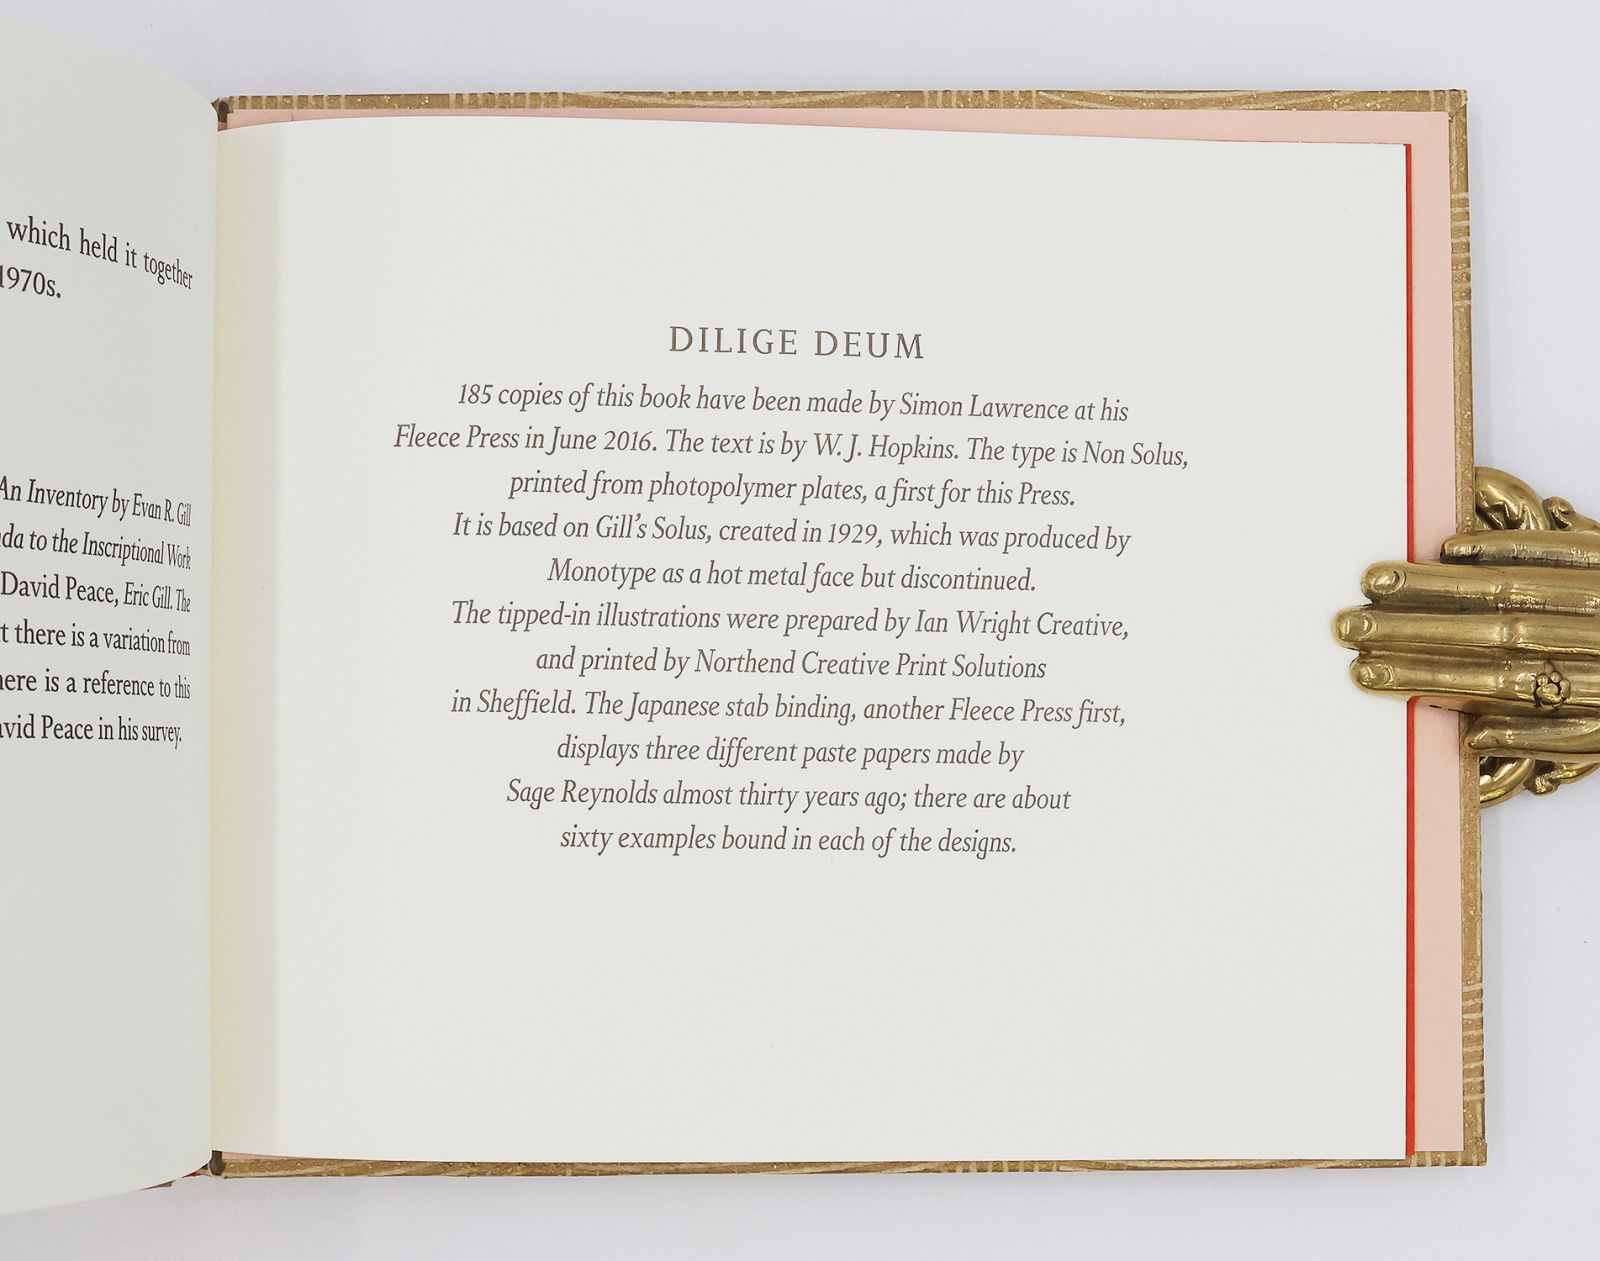 which held it together
1970s.
An Inventory by Evan R. Gill
to the Inscriptional Work
David Peace, Eric Gill. The
there is a variation from
is a reference to this
David Peace in his survey.
DILIGE DEUM
185 copies of this book have been made by Simon Lawrence at his
Fleece Press in June 2016. The text is by W. J. Hopkins. The type is Non Solus,
printed from photopolymer plates, a first for this Press.
It is based on Gill’s Solus, created in 1929, which was produced by
Monotype as a hot metal face but discontinued.
The tipped-in illustrations were prepared by Ian Wright Creative,
and printed by Northend Creative Print Solutions
in Sheffield. The Japanese stab binding, another Fleece Press first,
displays three different paste papers made by
Sage Reynolds almost thirty years ago; there are about
sixty examples bound in each of the designs.